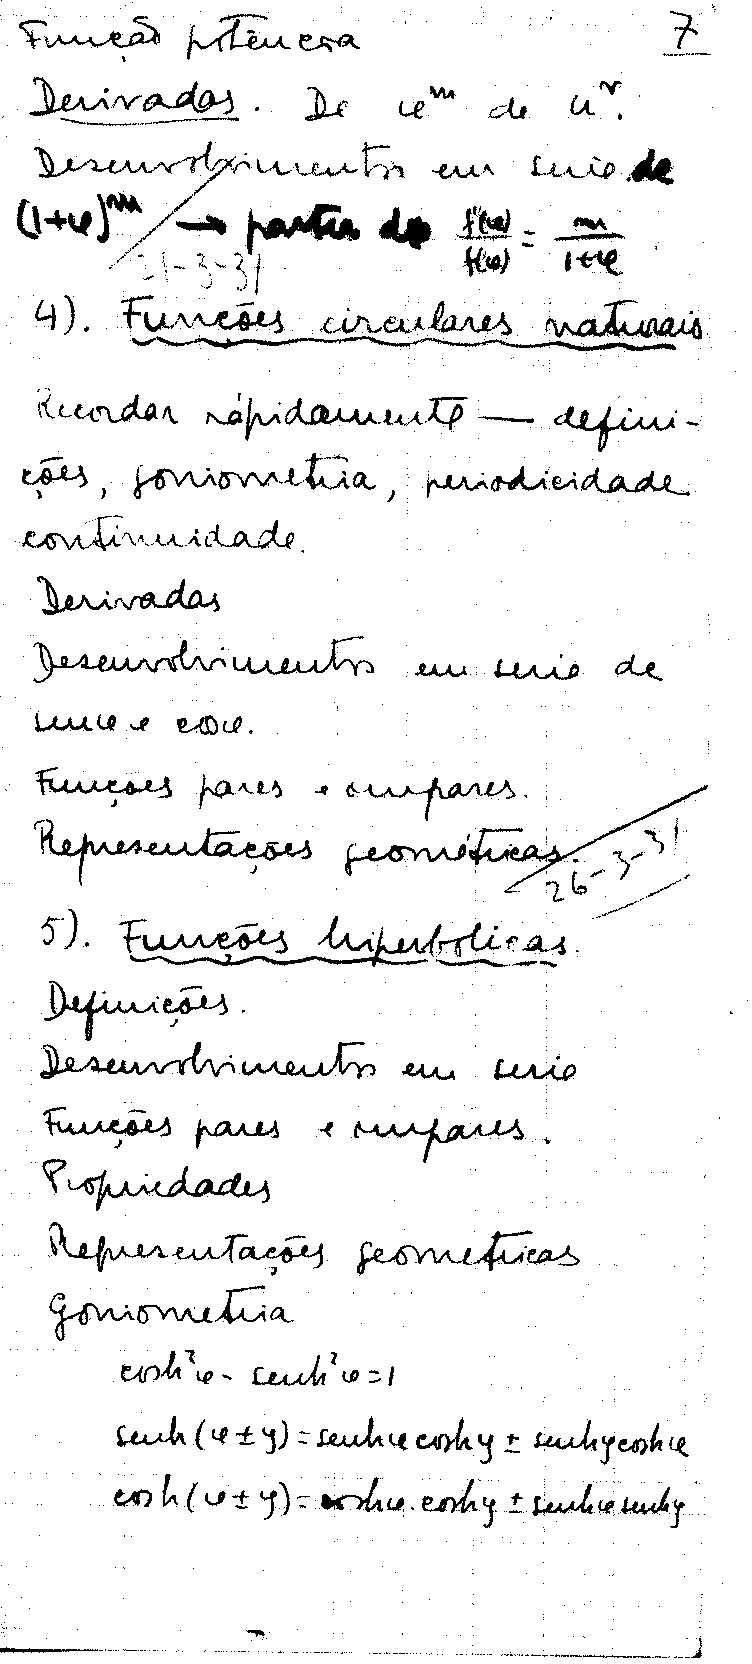 Função potência 7
Derivadas. De x^m de u^v.
Desenvolvimentos em serie de
(1+x)^m → partir de f'(x)/f(x) = m/(1+x)
21-3-31
4). Funções circulares naturais
Recordar rápidamente — defini-
ções, goniometria, periodicidade
continuidade.
Derivadas
Desenvolvimentos em serie de
senx e cosx.
Funções pares e impares.
Representações geométricas.
26-3-31
5). Funções hiperbolicas.
Definições.
Desenvolvimentos em serie
Funções pares e impares.
Propriedades
Representações geometricas
Goniometria
cosh²x - senh²x = 1
senh(x ± y) = senhx coshy ± senhy coshx
cosh(x ± y) = coshx . coshy ± senhx senhy